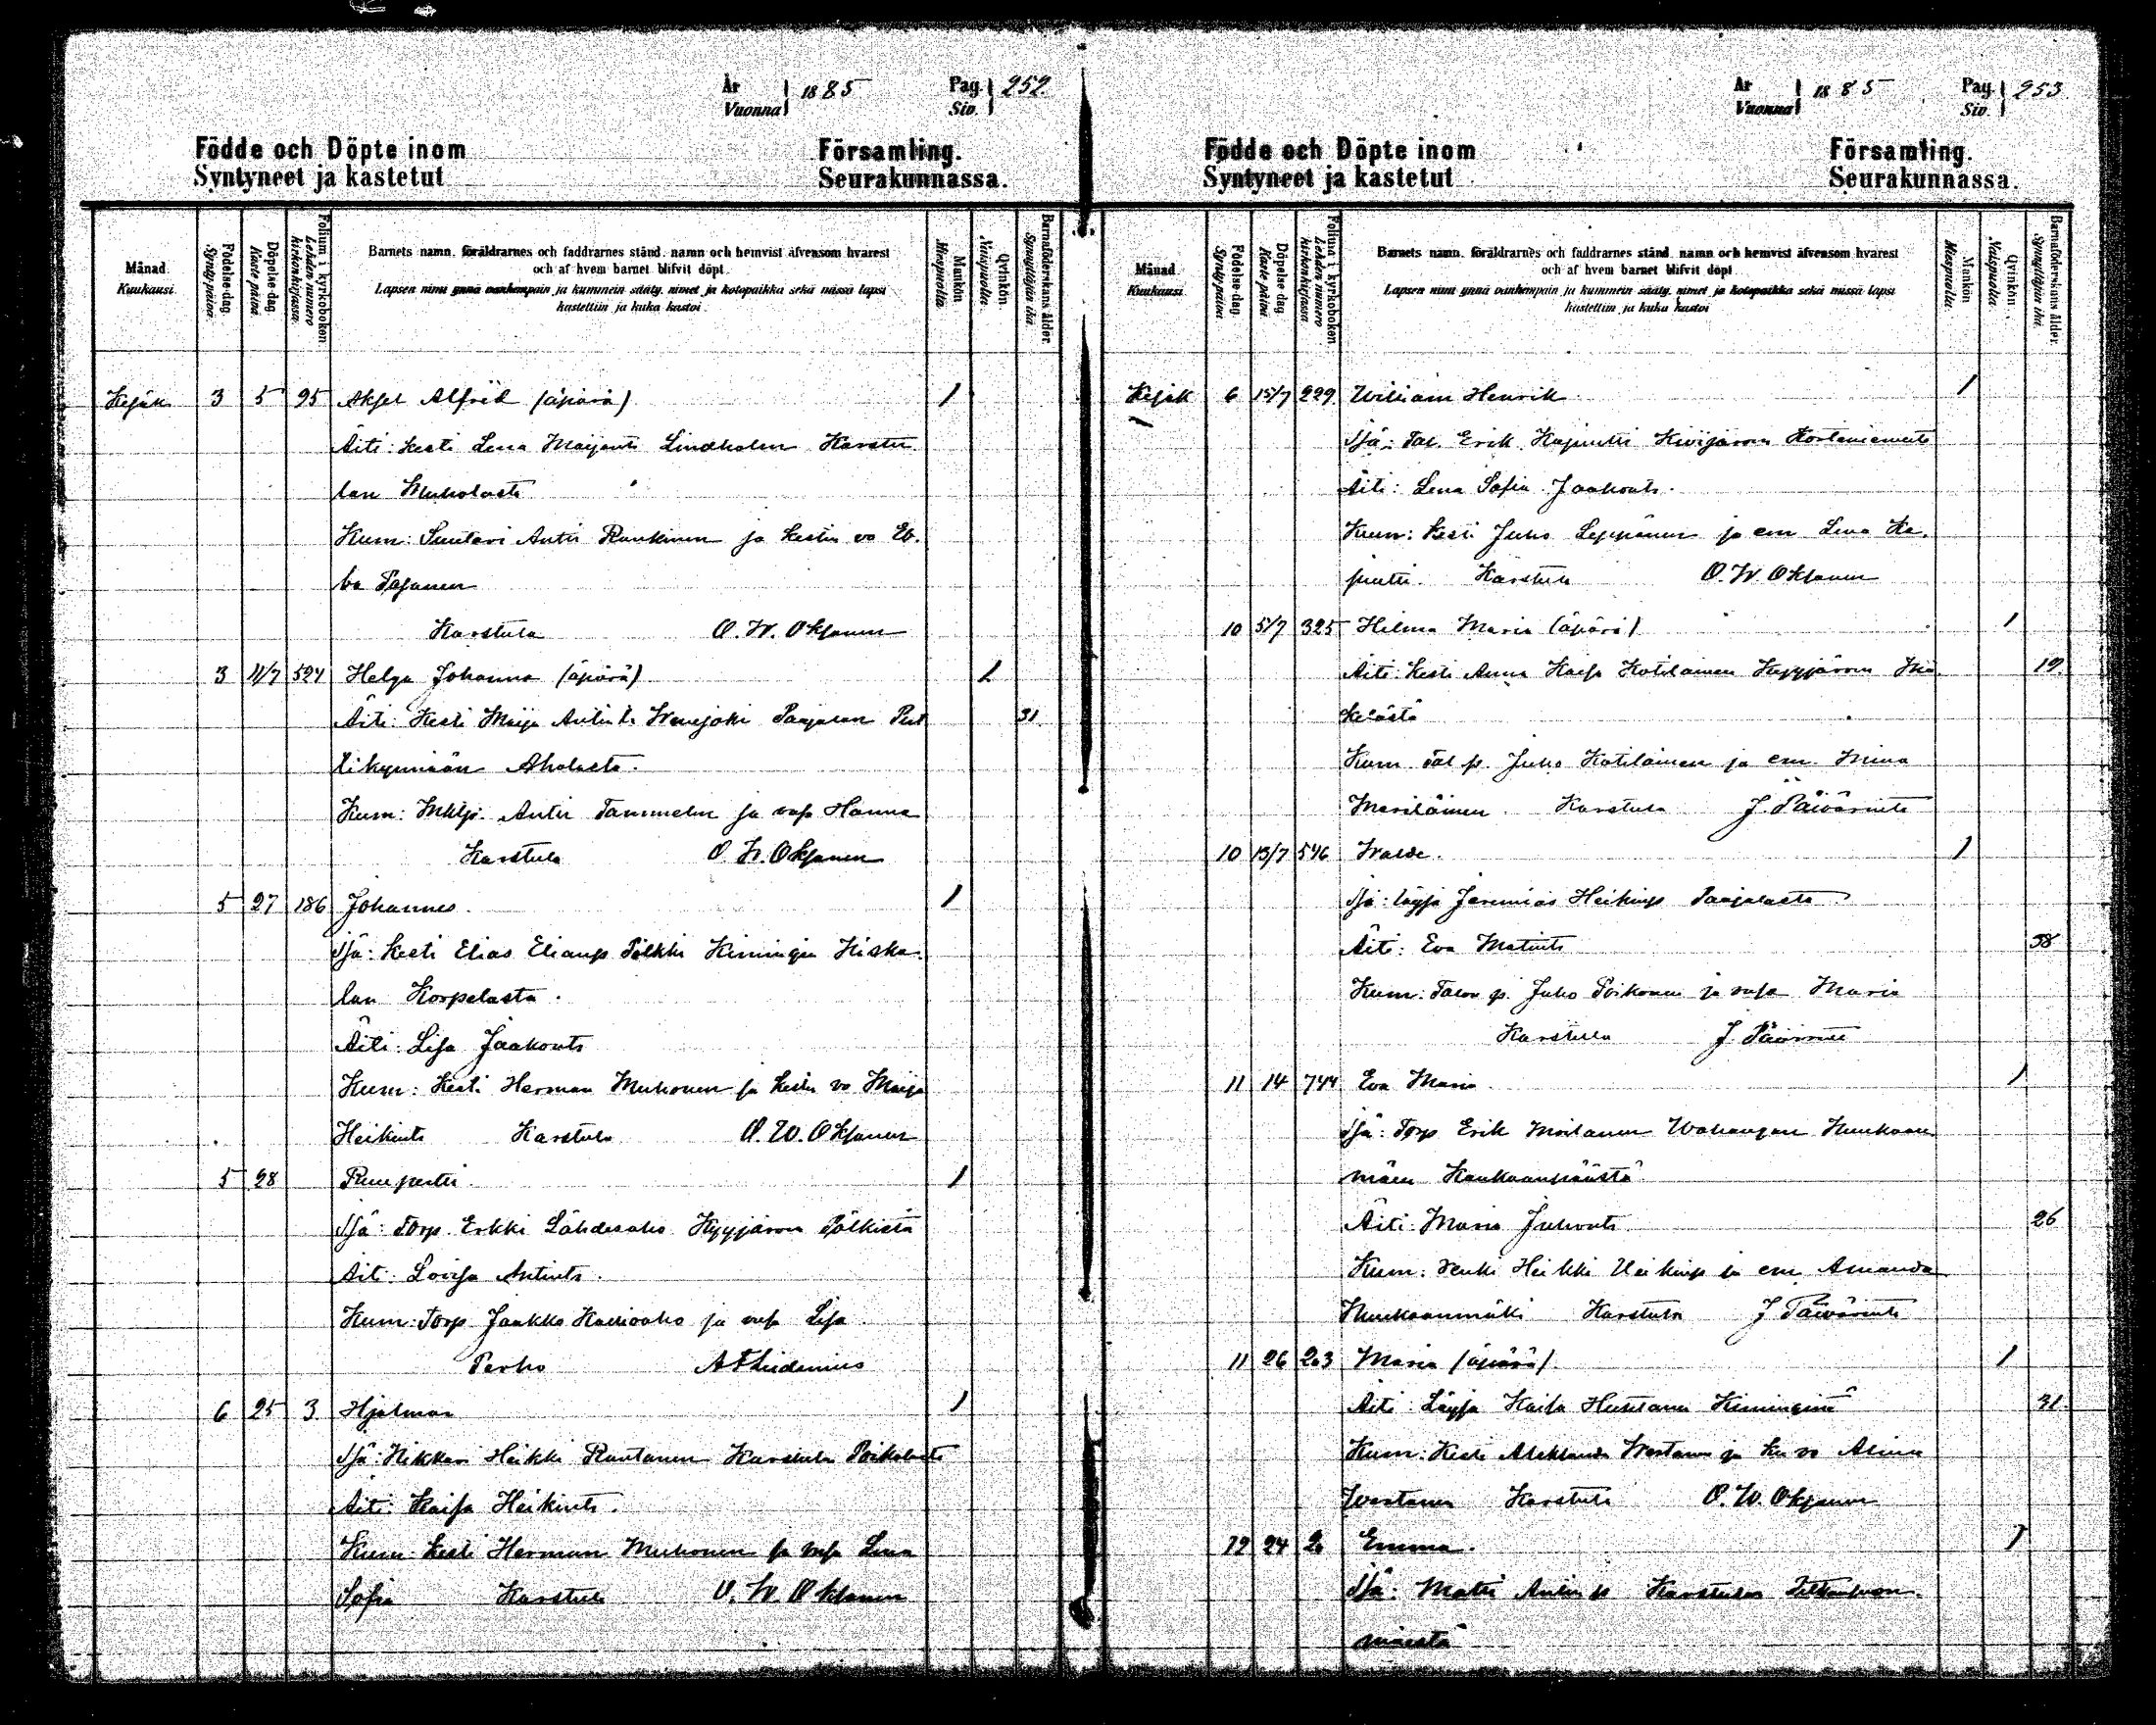 År Vuonna 1885 Pag. Siv. 252
Födde och Döpte inom Församling.
Syntyneet ja kastetut Seurakunnassa.
Månad. Kuukausi.
Födelse-dag. Synty-päivä.
Döpelse-dag. Kaste-päivä.
Folium i kyrkoboken. Lehden numero kirkonkirjassa.
Barnets namn, föräldrarnes och faddrarnes stånd, namn och hemvist äfvensom hvarest
och af hvem barnet blifvit döpt.
Lapsen nimi ynnä vanhempain ja kummein sääty, nimet ja kotopaikka sekä missä lapsi
kastettiin ja kuka kastoi.
Mankön. Miespuolia.
Qvinkön. Naispuolia.
Barnaföderskans ålder. Synnyttäjän ikä.
Kesäk 3 5 95 Aksel Alfrid (äpärä) 1
Äiti: Kesti Lena Maijant. Lindholm Karstu
lan Muholasta
Kum: Suutari Antti Raukinen ja Kestin vo Eb.
ba Pajanen
Karstula O. W. Oksanen
3 11/7 524 Helga Johanna (äpärä) 1
Äiti: Kesti Maija Antint. Paajalan 31
Aholasta.
Kum: Antti Tammelin ja vaso Hanna
Karstula O. W. Oksanen
5 27 186 Johannes. 1
Isä: Kesti Elias Elianp. Pölkki Kimingin Kiska.
lan Korpelasta.
Äiti: Lisa Jaakonts
Kum: Kesti Herman Muhonen ja Kestin vo Maija
Heikints Karstula O. W. Oksanen
5 28 Ruuperti. 1
Isä: Torp. Erkki Lähdesaho Kyyjärven Pölkistä
Äit: Lovisa Antints.
Kum: Torp Jaakko ja vaso Lisa
Perho A F Lindenius
6 25 3 Hjalmar 1
Isä: Nikkari Heikki Rautanen Karstula Poikolasta
Äiti: Kaisa Heikints.
Kum: Kesti Herman Muhonen ja vaso Lena
Sofia Karstula O. W. Oksanen
År Vuonna 1885 Pag. Siv. 253
Födde och Döpte inom Församling.
Syntyneet ja kastetut Seurakunnassa.
Månad. Kuukausi.
Födelse-dag. Synty-päivä.
Döpelse-dag. Kaste-päivä.
Folium i kyrkoboken. Lehden numero kirkonkirjassa.
Barnets namn, föräldrarnes och faddrarnes stånd, namn och hemvist äfvensom hvarest
och af hvem barnet blifvit döpt.
Lapsen nimi ynnä vanhempain ja kummein sääty, nimet ja kotopaikka sekä missä lapsi
kastettiin ja kuka kastoi.
Mankön. Miespuolia.
Qvinkön. Naispuolia.
Barnaföderskans ålder. Synnyttäjän ikä.
Kesäk 6 15/7 229 William Henrik. 1
Isä: Tal. Erik Kaputti Kivijärven
Äiti: Lena Sofia Jaakonts.
Kum: Kesti Juho Leppänen ja em Lena Ka.
putti. Karstula O. W. Oksanen
10 5/7 325 Hilma Maria (äpärä) 1
Äiti: Kesti Anna Kaisa Kotilainen Kyyjärven 19.
kelästä
Kum. Tal p. Juho Kotilainen ja em. Mina
Mariläinen. Karstula J. Päivärinta
10 13/7 546 Walde. 1
Isä: Löysä Jeremias Heikinp Paajalasta
Äiti: Eva Matints 38
Kum: Talon p. Juho Poikonen ja vaso Maria
Karstula J. Päivärinta
11 14 744 Eva Maria. 1
Isä: Torp Erik Moilanen Wahangan
mäen
Äiti: Maria Juhonts. 26
Kum: Renki Heikki Heikinp ja em Amanda
Karstula J Päivärinta
11 26 203 Maria (äpärä). 1
Äiti: Löysä Kaisa 31.
Kum: Kesti ja Ke vo
Karstula O. W. Oksanen
12 24 2 Emma. 1
Isä: Matti Antinp Karstulan
mäestä